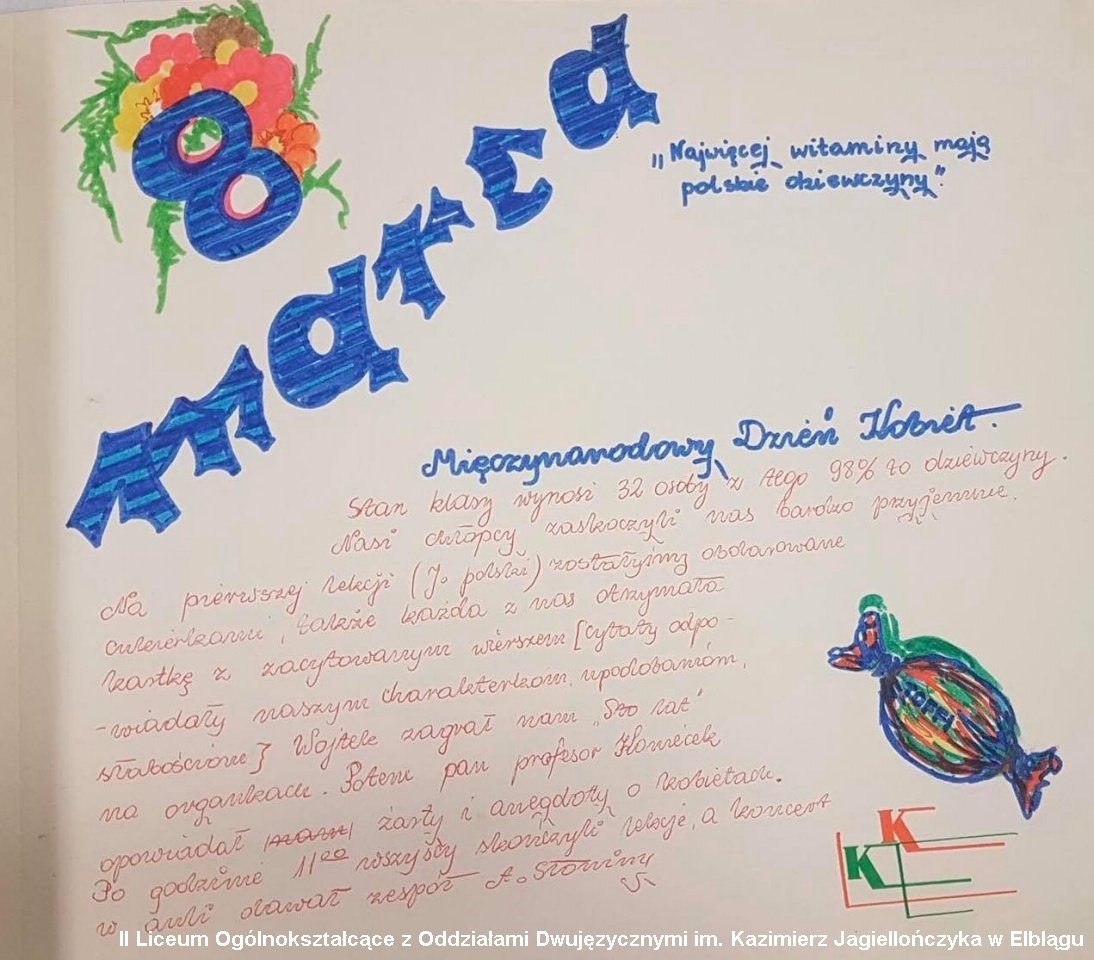 8 marca
„Najwięcej witaminy mają
polskie dziewczyny”.
Międzynarodowy Dzień Kobiet.
Stan klasy wynosi 32 osoby z tego 98% to dziewczyny.
Nasi chłopcy zaskoczyli nas bardzo przyjemnie.
Na pierwszej lekcji (J. polski) zostałyśmy obdarowane
cukierkami, także każda z nas otrzymała
kartkę z zacytowanym wierszem [cytaty odpo-
-wiadały naszym charakterkom, upodobaniom,
słabościom] Wojtek zagrał nam „Sto lat”
na organkach. Potem pan profesor
opowiadał nam żarty i anegdoty o kobietach.
Po godzinie 11⁰⁰ wszyscy skończyli lekcje, a koncert
w auli dawał zespół A. Słoniny
KK
II Liceum Ogólnokształcące z Oddziałami Dwujęzycznymi im. Kazimierz Jagiellończyka w Elblągu